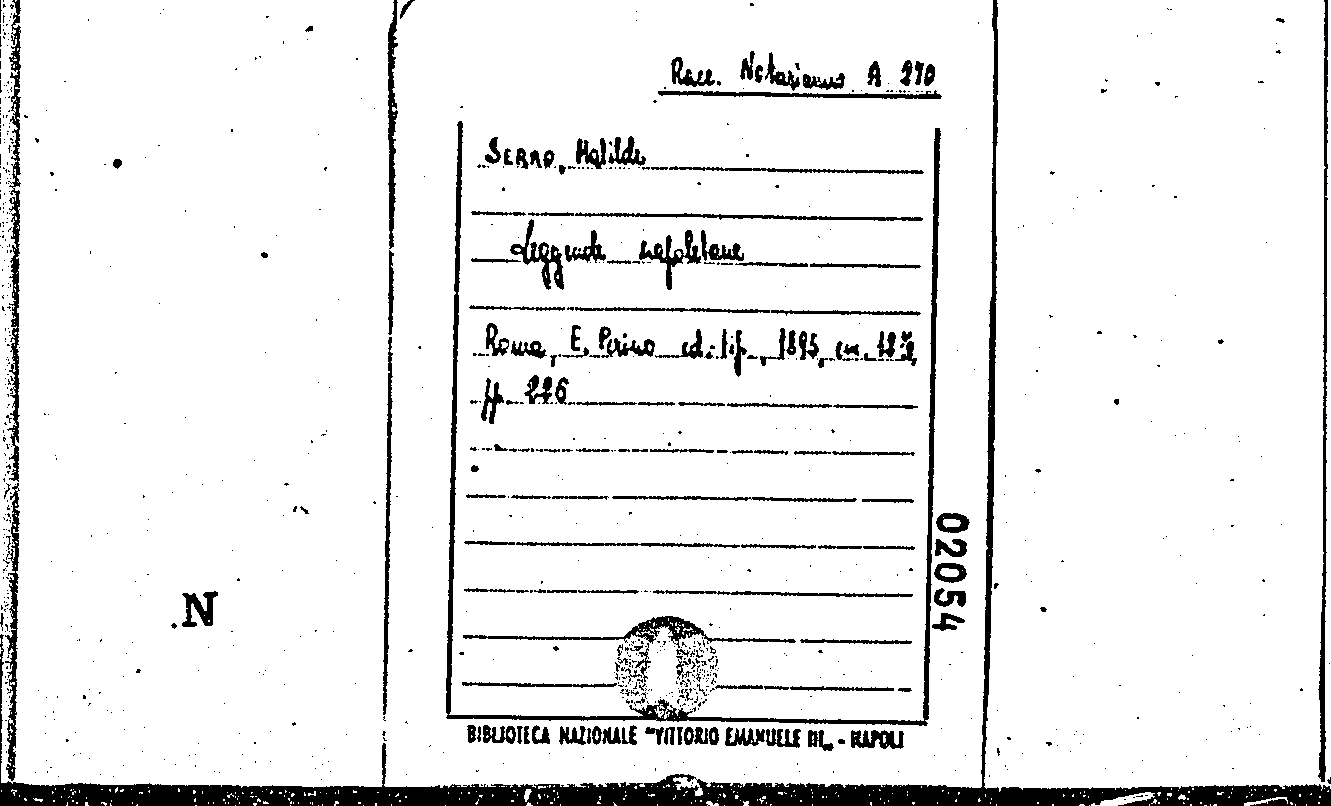 Racc. Notarianni A 270
SERAO, Matilde
Leggende napoletane
Roma, E. Perino ed.-tip., 1895, in. 12º,
pp. 226
02054
N
BIBLIOTECA NAZIONALE "VITTORIO EMANUELE III„ - NAPOLI